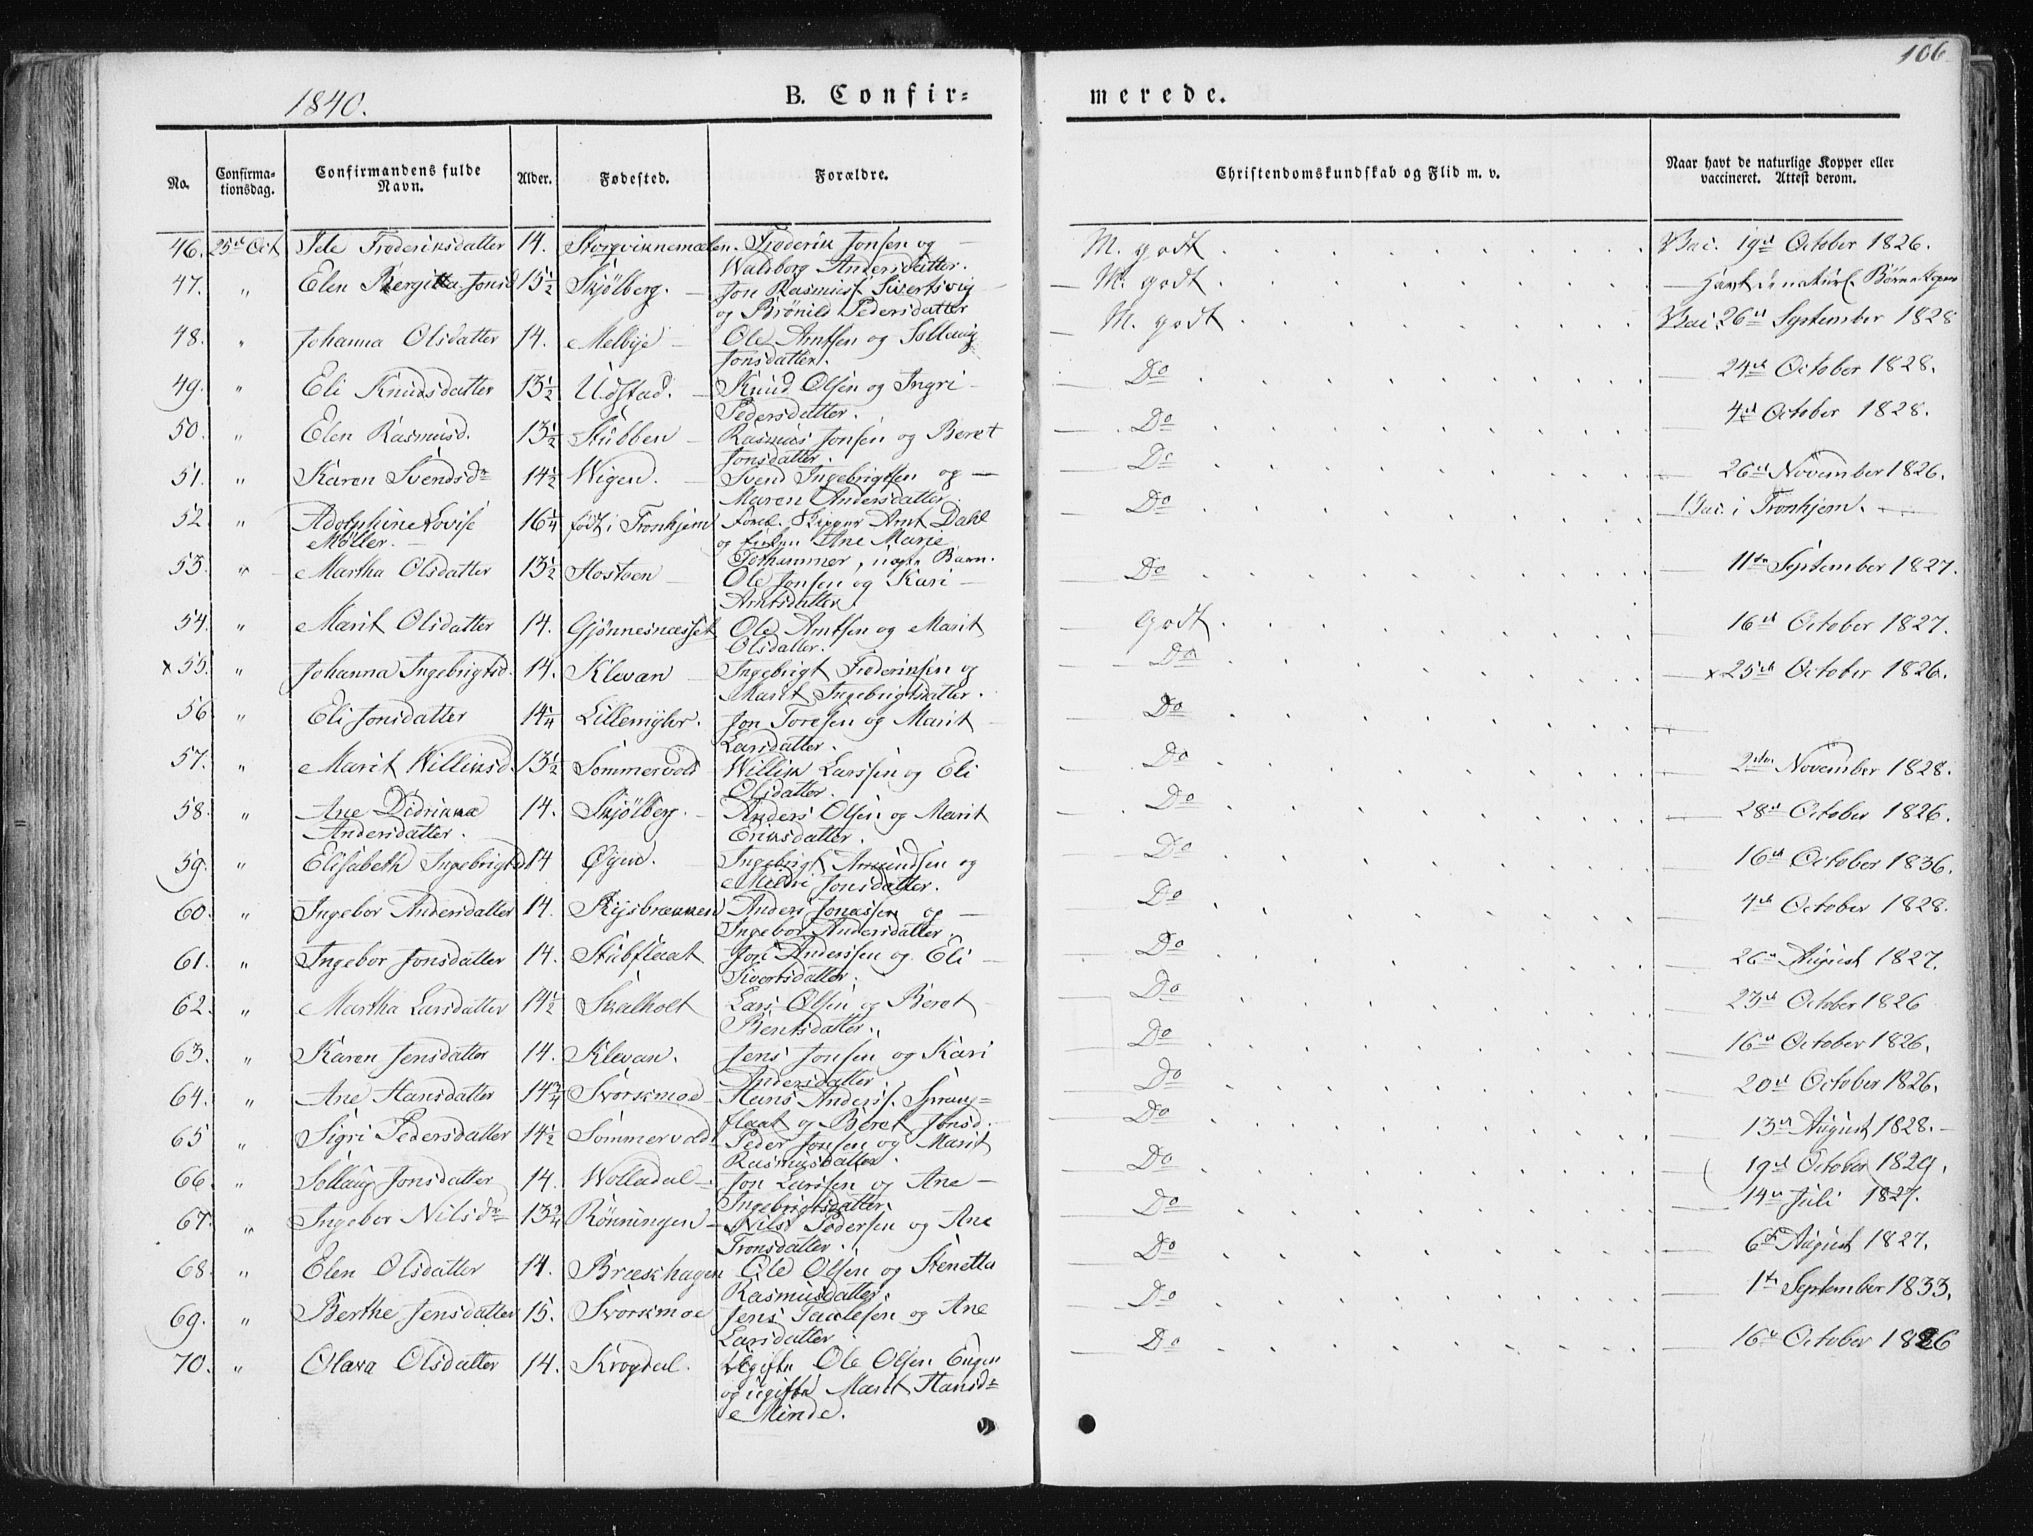 106
1840. B. Confir= merede.
No. Confirma-tionsdag. Confirmandens fulde Navn. Alder. Fødested. Forældre. Christendomskundskab og Flid m. v. Naar havt de naturlige Kopper eller vaccineret. Attest derom.
46. 25de Oct Frederiksdatter 14. Frederik Jonsen og M. godt Vac. 19de October 1826.
Waldborg Andersdatter.
47. " Elen Bergitta Jonsd 15½ Skjölberg. Jon Rasmuss. Sivertsvig M. godt havt de naturl. Börnekoper
og Brönild Pedersdatter
48. " Johanna Olsdatter 14. Melbye Ole Arntsen og Sollaug M. godt Vac. 26de September 1828
Jonsdatter.
49. " Eli Knudsdatter 13½ Udstad. Knud Olsen og Ingri Do 24de October 1828.
Pedersdatter.
50. " Elen Rasmusd. 13½ Stubben Rasmus Jonsen og Beret Do 4de October 1828.
Jonsdatter.
51. " Karen Svendsdr 14½ Wigen. Svend Ingebrigtsen og Do 26de November 1826.
Maren Andersdatter.
52 " Adolphine Lovise 16¼ født i Tronhjem Skipper Arnt Dahl Do Vac. i Tronhjem.
Möller. og Ane Marie
Barn.
53. " Martha Olsdatter 13½ Hostoen Ole Jonsen og Kari Do 11te September 1827.
Arntsdatter.
54. " Marit Olsdatter 14. Gjönnesnesset Ole Arntsen og Marit Godt 16de October 1827.
Olsdatter.
x 55. " Johanna Ingebrigtsd. 14. Klevan Ingebrigt Frederiksen og Do x 25de October 1826.
Marit Ingebrigtsdatter.
56 " Eli Jonsdatter 14¼ Jon Toresen og Marit Do
Larsdatter.
57. " Marit Willimsd. 13½ Sommervold Willim Larssen og Eli Do 2den November 1828.
Olsdatter.
58. " Ane Didrikka 14. Skjölberg. Anders Olsen og Marit Do 28de October 1826.
Andersdatter. Eriksdatter.
59. " Elisabeth Ingebrigtsd 14 Øyen. Ingebrigt Amundsen og Do 16de October 1836.
Mildri Jonsdatter.
60. " Ingebor Andersdatter 14. Anders Jonassen og Do 4de October 1828.
Ingebor Andersdatter.
61. " Ingebor Jonsdatter 14. Stubflaat Jon Anderssen og Eli Do 26de August 1827.
Sivertsdatter.
62. " Martha Larsdatter 14½ Skalholt Lars Olsen og Beret Do 23de October 1826
Bentsdatter.
63. " Karen Jensdatter 14. Klevan. Jens Jonsen og Kari Do 16de October 1826.
Andersdatter.
64. " Ane Hansdatter 14¾ Svorskmoe Hans Anderss. Sprang= Do 20de October 1826.
flaat og Beret Jonsd.
65 " Sigri Pedersdatter 14½ Sommervold Peder Jonsen og Marit Do 13de August 1828.
Rasmusdatter.
66. " Sollaug Jonsdatter 14. Wolladal Jon Larssen og Ane Do 19de October 1829.
Ingebrigtsdatter.
67. " Ingebor Nilsdr 13¾ Rönningen Nils Pedersen og Ane Do 14de Juli 1827.
Tronsdatter.
68. " Elen Olsdatter 14. Bræskhagen Ole Olsen og Stenetta Do 6te August 1827.
Rasmusdatter.
69. " Berthe Jensdatter 15. Svorskmoe Jens Taalesen og Ane Do 1te September 1833.
Larsdatter
70. " Olava Olsdatter 14. Krogdal. Ugifte Ole Olsen Engen Do 16de October 1826
og ugifte Marit Hansdr
Minde.